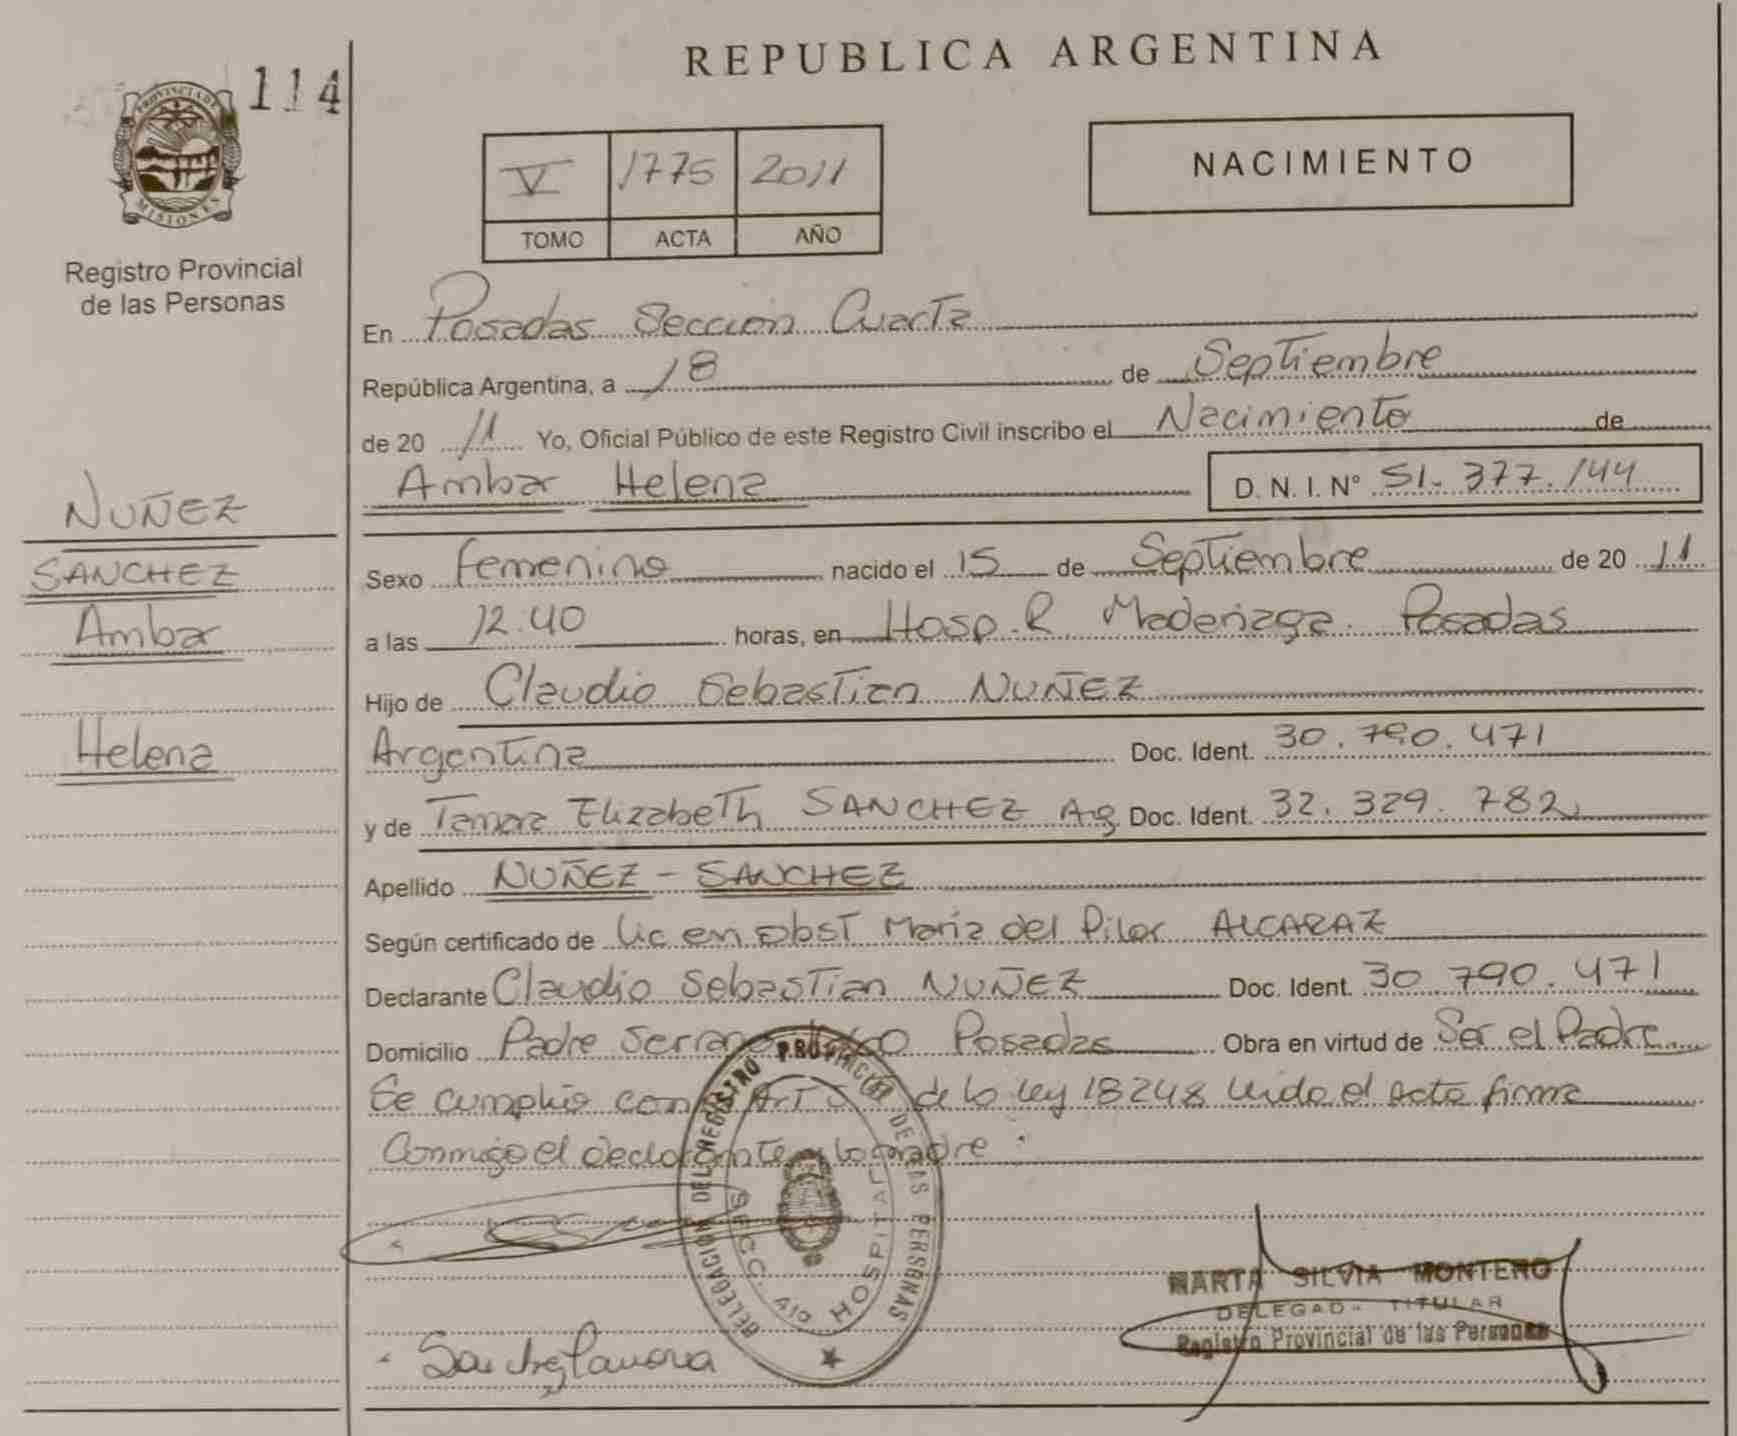 REPUBLICA ARGENTINA
114
PROVINCIA DE
MISIONES
Registro Provincial
de las Personas
V 1775 2011
TOMO ACTA AÑO
NACIMIENTO
En Posadas Sección Cuarta
República Argentina, a 18 de Septiembre
de 20 11 Yo, Oficial Público de este Registro Civil inscribo el Nacimiento de
Ambar Helena D. N. I. N° 51. 377. 144
NUÑEZ
SANCHEZ
Ambar
Helena
Sexo femenino nacido el 15 de Septiembre de 20 11
a las 12.40 horas, en Hosp. R. Madariaga. Posadas
Hijo de Claudio Sebastian NUÑEZ
Argentina Doc. Ident. 30. 790. 471
y de Tamara Elizabeth SANCHEZ Doc. Ident. 32. 329. 782
Apellido NUÑEZ - SANCHEZ
Según certificado de Lic en Obst Maria del Pilar ALCARAZ
Declarante Claudio Sebastian NUÑEZ Doc. Ident. 30 790. 471
Domicilio Padre Serrano Posadas Obra en virtud de Ser el Padre
Se cumplio con Art de la ley 18248 leida el acta firma
Conmigo el declarante y la madre
DELEGACION DEL REGISTRO PROVINCIAL DE LAS PERSONAS
SECC. 4ta HOSPITAL
MARTA SILVIA MONTERO
DELEGADA TITULAR
Registro Provincial de las Personas